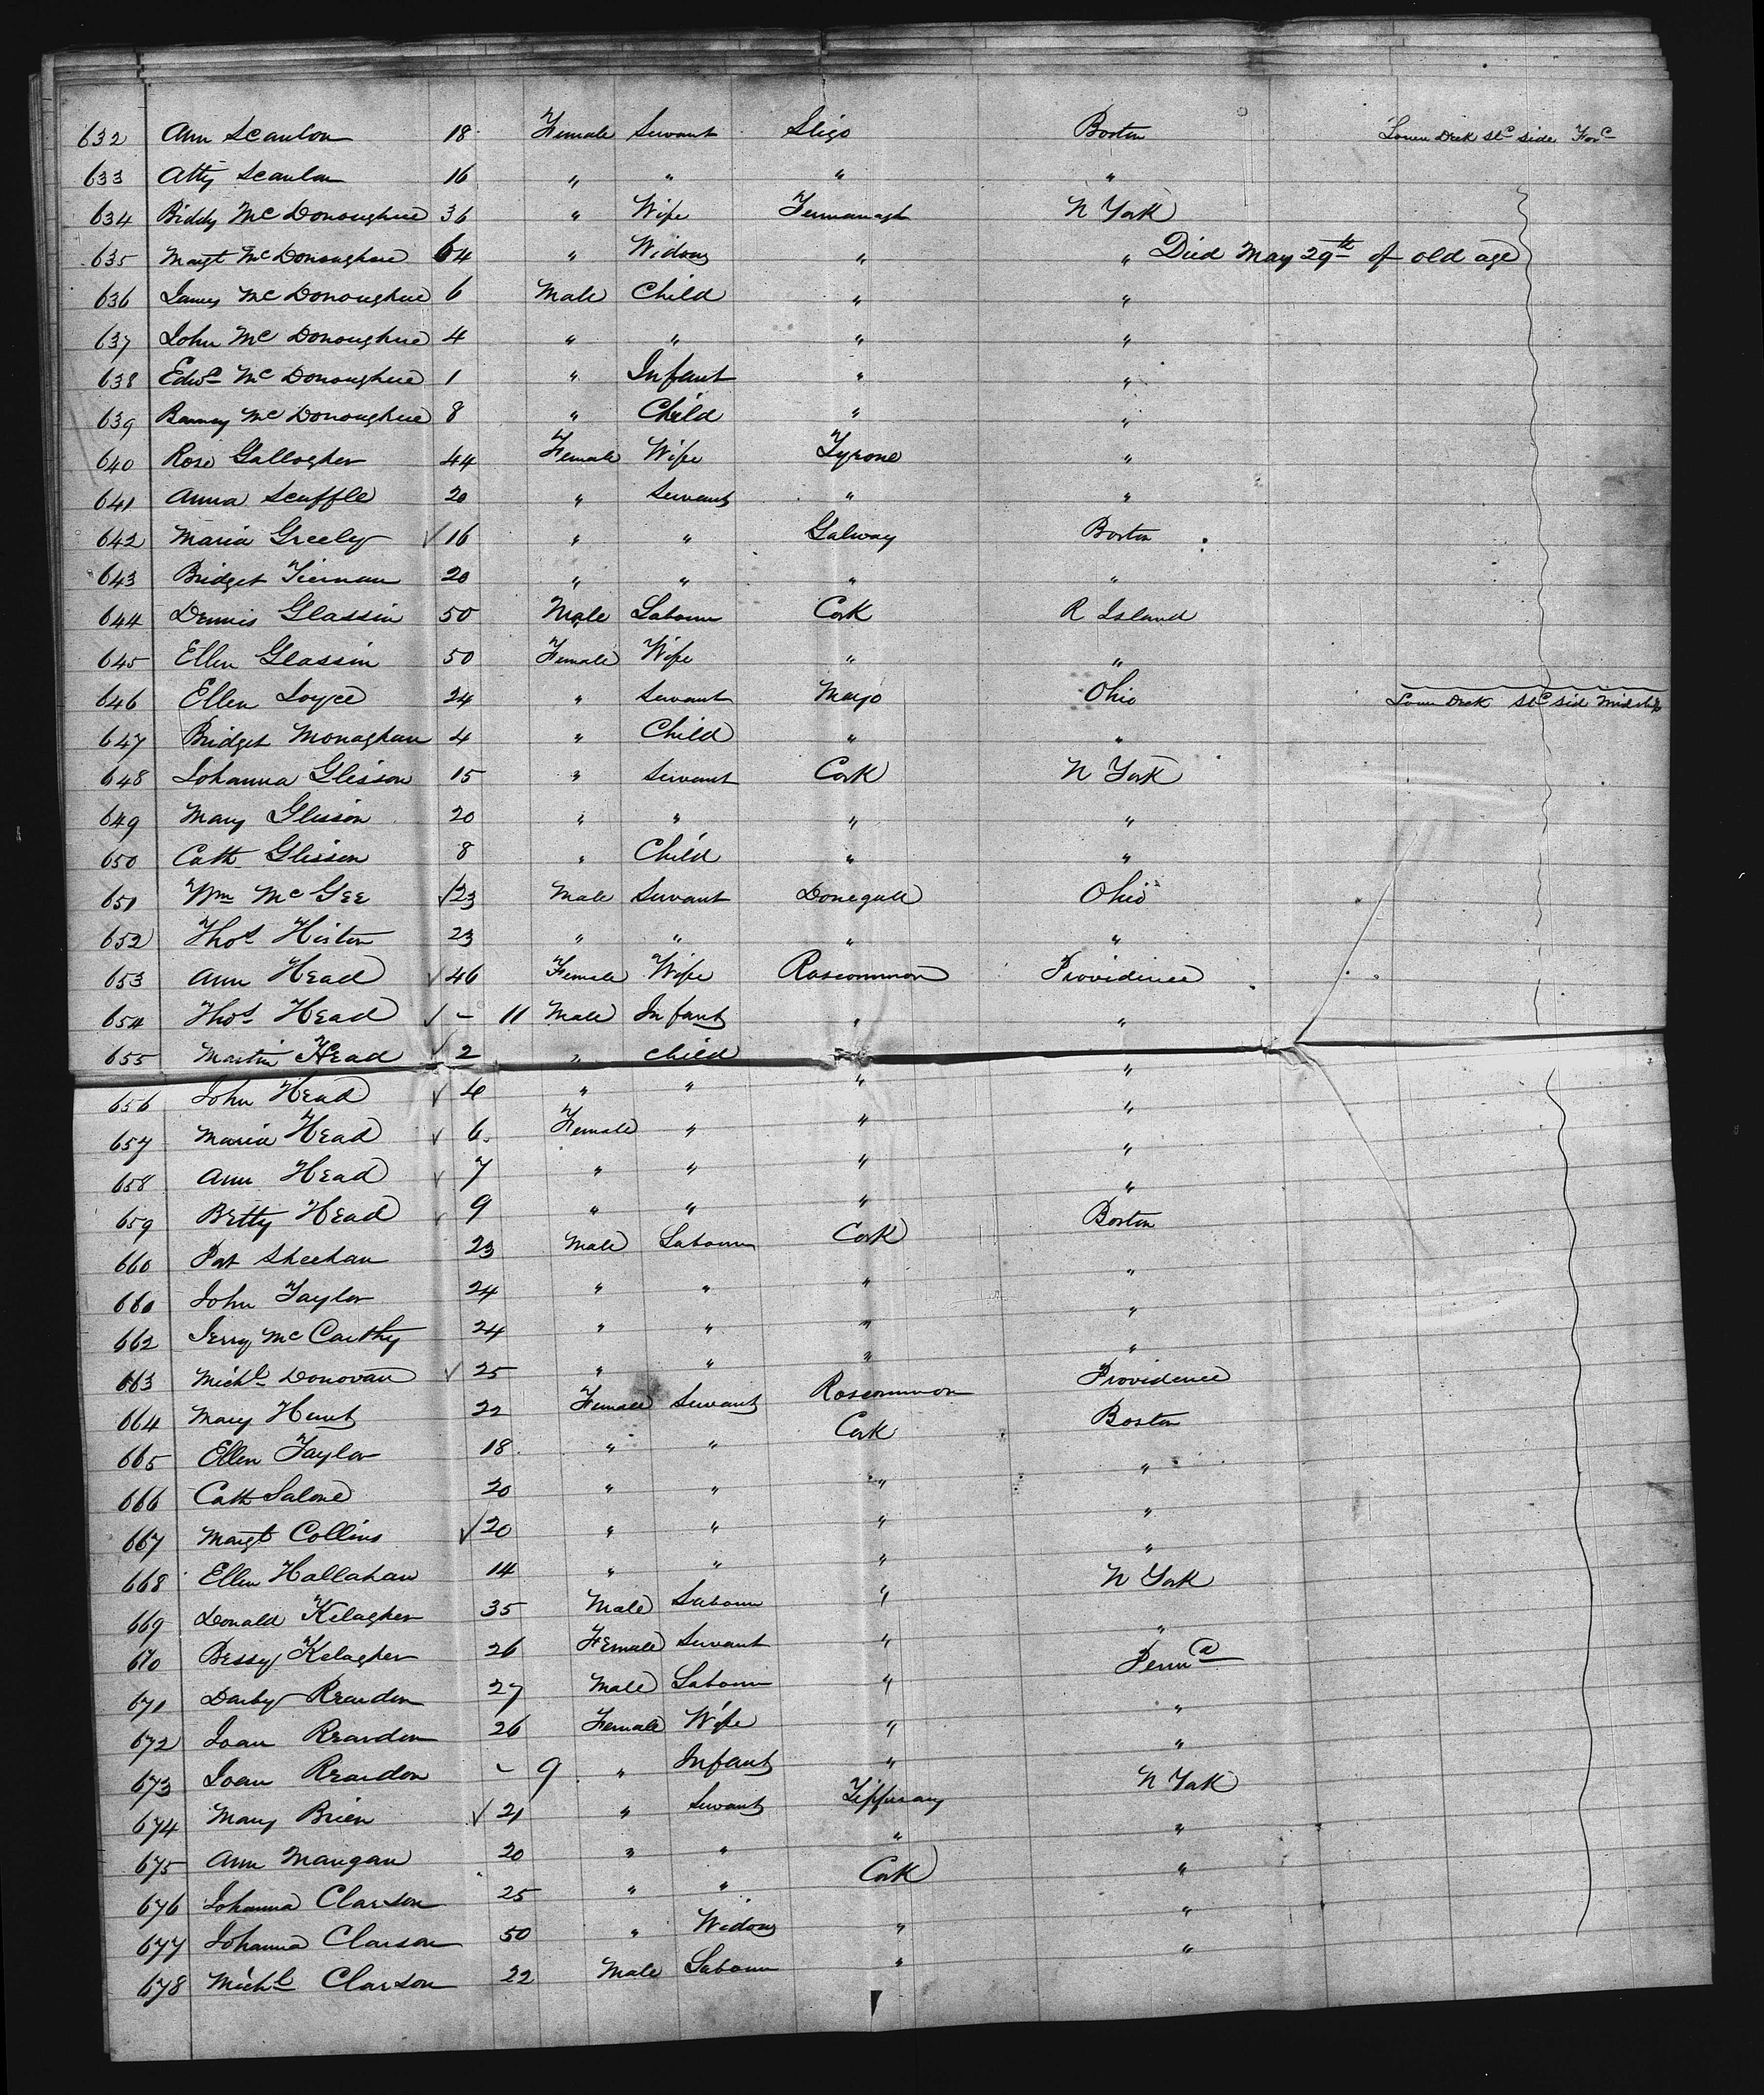 632 Ann Scanlon 18 Female Servant Sligo Boston Lower Deck Stᵈ Side Forᵈ
633 Atty Scanlon 16 " " " "
634 Biddy McDonoughue 36 " Wife Fermanagh N York
635 Margt McDonoughue 64 " Widow " " Died May 29th of old age
636 James McDonoughue 6 Male Child " "
637 John McDonoughue 4 " " " "
638 Edwd McDonoughue 1 " Infant " "
639 Barney McDonoughue 8 " Child " "
640 Rose Gallogher 44 Female Wife Tyrone "
641 Anna Scuffle 20 " Servant " "
642 Maria Greely √ 16 " " Galway Boston
643 Bridget Tiernan 20 " " " "
644 Dennis Glassin 50 Male Labourer Cork R Island
645 Ellen Glassin 50 Female Wife " "
646 Ellen Joyce 24 " Servant Mayo Ohio Lower Deck Stᵈ Sid Midship
647 Bridget Monaghan 4 " Child " "
648 Johanna Glisson 15 " Servant Cork N York
649 Mary Glisson 20 " " " "
650 Cath Glisson 8 " Child " "
651 Wm McGee √ 23 Male Servant Donegall Ohio
652 Thos Histon 23 " " " "
653 Ann Head √ 46 Female Wife Roscommon Providence
654 Thos Head √ - 11 Male Infant " "
655 Martin Head √ 2 " Child " "
656 John Head √ 4 " " " "
657 Maria Head √ 6 Female " " "
658 Ann Head √ 7 " " " "
659 Betty Head √ 9 " " " "
660 Pat Sheehan 23 Male Labourer Cork Boston
660 John Taylor 24 " " " "
662 Jerry McCarthy 24 " " " "
663 Michl Donovan √ 25 " " " "
664 Mary Hunt 22 Female Servant Roscommon Providence
665 Ellen Taylor 18 " " Cork Boston
666 Cath Salone 20 " " " "
667 Margt Collins √ 20 " " " "
668 Ellen Hallahan 14 " " " "
669 Donald Kelagher 35 Male Labourer " N York
670 Bessy Kelagher 26 Female Servant " "
671 Darby Reardon 27 Male Labourer " Penna
672 Joan Reardon 26 Female Wife " "
673 Joan Reardon - 9 " Infant " "
674 Mary Brien √ 21 " Servant Tipperary N York
675 Ann Mangan 20 " " " "
676 Johanna Clarson 25 " " Cork "
677 Johanna Clarson 50 " Widow " "
678 Michl Clarson 22 Male Labourer " "